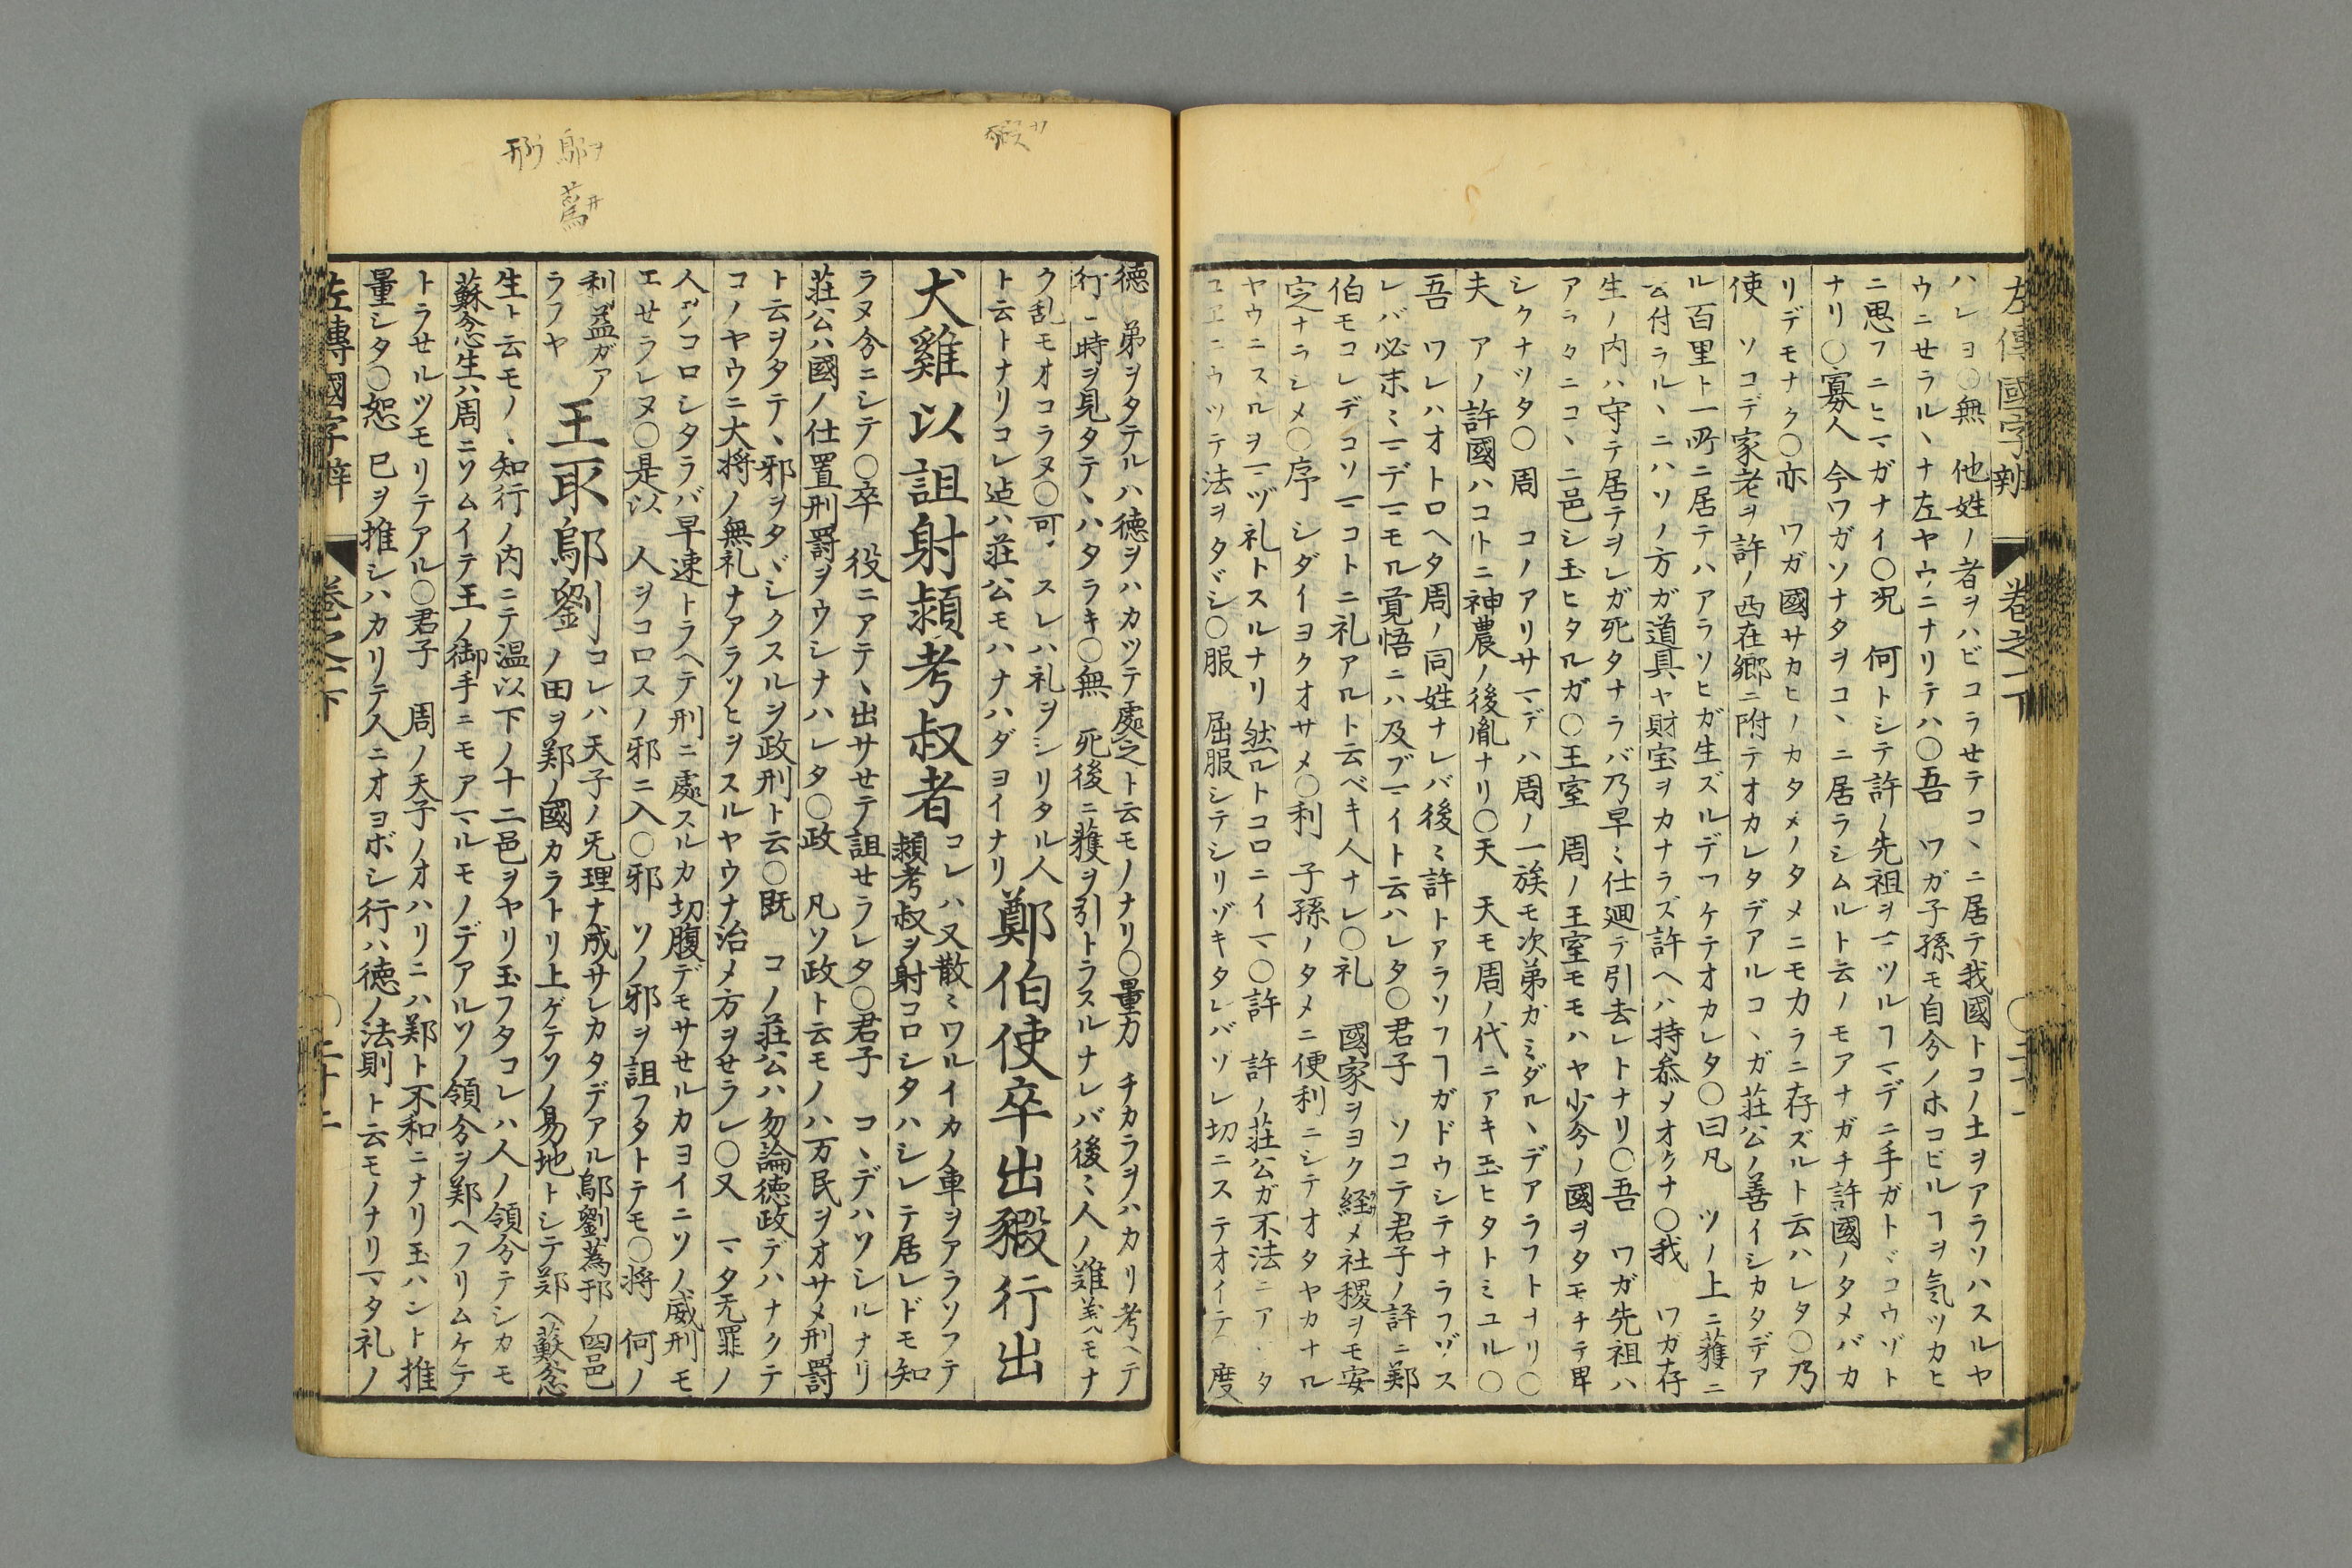 左傳國字辨 卷之一下 ○二十一
ハレヨ○無 他姓ノ者ヲハビコラせテコヽニ居テ我國トコノ土ヲアラソハスルヤ
ウニせラルヽナ左ヤウニナリテハ○吾 ワガ子孫モ自分ノホコビルヿヲ気ツカヒ
ニ思フニヒマガナイ○况 何トシテ許ノ先祖ヲマツルヿマデニ手ガトヾコウゾト
ナリ○寡人 今ワガソナタヲコヽニ居ラシムルト云ノモアナガチ許國ノタメバカ
リデモナク○亦 ワガ國サカヒノカタメノタメニモ力ラニ存ズルト云ハレタ○乃
使 ソコデ家老ヲ許ノ西在郷ニ附テオカレタデアルコヽガ莊公ノ善イシカタデア
ル百里ト一所ニ居テハアラソヒガ生ズルデワケテオカレタ○曰凡 ツノ上ニ獲ニ
云付ラルヽニハソノ方ガ道具ヤ財宝ヲカナラズ許ヘハ持参ヲオクナ○我 ワガ存
生ノ内ハ守テ居テヲレガ死タナラバ乃早ミ仕廻テ引去レトナリ○吾 ワガ先祖ハ
アラタニコヽニ邑シ玉ヒタルガ○王室 周ノ王室モモハヤ少分ノ國ヲタモチテ卑
シクナツタ○周 コノアリサマデハ周ノ一族モ次第ガミダルヽデアラフトナリ○
夫 アノ許國ハコトニ神農ノ後胤ナリ○天 天モ周ノ代ニアキ玉ヒタトミユル○
吾 ワレハオトロヘタ周ノ同姓ナレバ後ミ許トアラソフヿガドウシテナラフゾス
レバ必末ミマデマモル覚悟ニハ及ブマイト云ハレタ○君子 ソコテ君子ノ評ニ鄭
伯モコレデコソマコトニ礼アルト云ベキ人ナレ○礼 國家ヲヨク経メ社稷ヲモ安
定ナラシメ○序 シダイヨクオサメ○利 子孫ノタメニ便利ニシテオタヤカナル
ヤウニスルヲマヅ礼トスルナリ然ルトコロニイマ○許 許ノ莊公ガ不法ニアヽタ
ユエニウツテ法ヲタヾシ○服 屈服シテシリゾキタレバソレ切ニステオイテ 度
德 弟ヲタテルハ德ヲハカツテ處之ト云モノナリ○量力 チカラヲハカリ考ヘテ
行ー時ヲ見タテヽハタラキ○無 死後ニ獲ヲ引トラスルナレバ後ミ人ノ難義ヘモナ
ク乱モオコラヌ○可 スレハ礼ヲシリタル人
ト云トナリコレ迠ハ莊公モハナハダヨイナリ
鄭伯使卒出豭行出
犬雞以詛射潁考叔者
コレハ又散ミワルイカノ車ヲアラソフテ
潁考叔ヲ射コロシタハシレテ居レドモ知
ラヌ分ニシテ○卒 役ニアテヽ出サせテ詛せラレタ○君子 コヽデハソシルナリ
莊公ハ國ノ仕置刑罸ヲウシナハレタ○政 凡ソ政ト云モノハ万民ヲオサメ刑罸
ト云ヲタテヽ邪ヲタヾシクスルヲ政刑ト云○既 コノ莊公ハ勿論德政デハナクテ
コノヤウニ大將ノ無礼ナアラソヒヲスルヤウナ治メ方ヲせラレ○又 マタ无罪ノ
人ガノコロシタラバ早速トラヘテ刑ニ處スルカ切腹デモサせルカヨイニソノ威刑モ
エせラレヌ○是以 人ヲコロスノ邪ニ入○邪 ソノ邪ヲ詛フタトテモ○將 何ノ
利益ガアラフヤ
王取鄔劉
コレハ天子ノ无理ナ成サレカタデアル鄔劉蔿邘ノ四邑
ノ田ヲ鄭ノ國カラトリ上ゲテソノ易地トシテ鄭ヘ蘇忿
生ト云モノヽ知行ノ内ニテ温以下ノ十二邑ヲヤリ玉フタコレハ人ノ領分テシカモ
蘇忿生ハ周ニソムイテ王ノ御手ニモアマルモノデアルソノ領分ヲ鄭ヘフリムケテ
トラせルツモリテアル○君子 周ノ天子ノオハリニハ鄭ト不和ニナリ玉ハント推
量シタ○恕 已ヲ推シハカリテ人ニオヨボシ行ハ徳ノ法則ト云モノナリマタ礼ノ
左傳國字辨 卷之一下 ○二十二
豭
鄔
邘
蔿